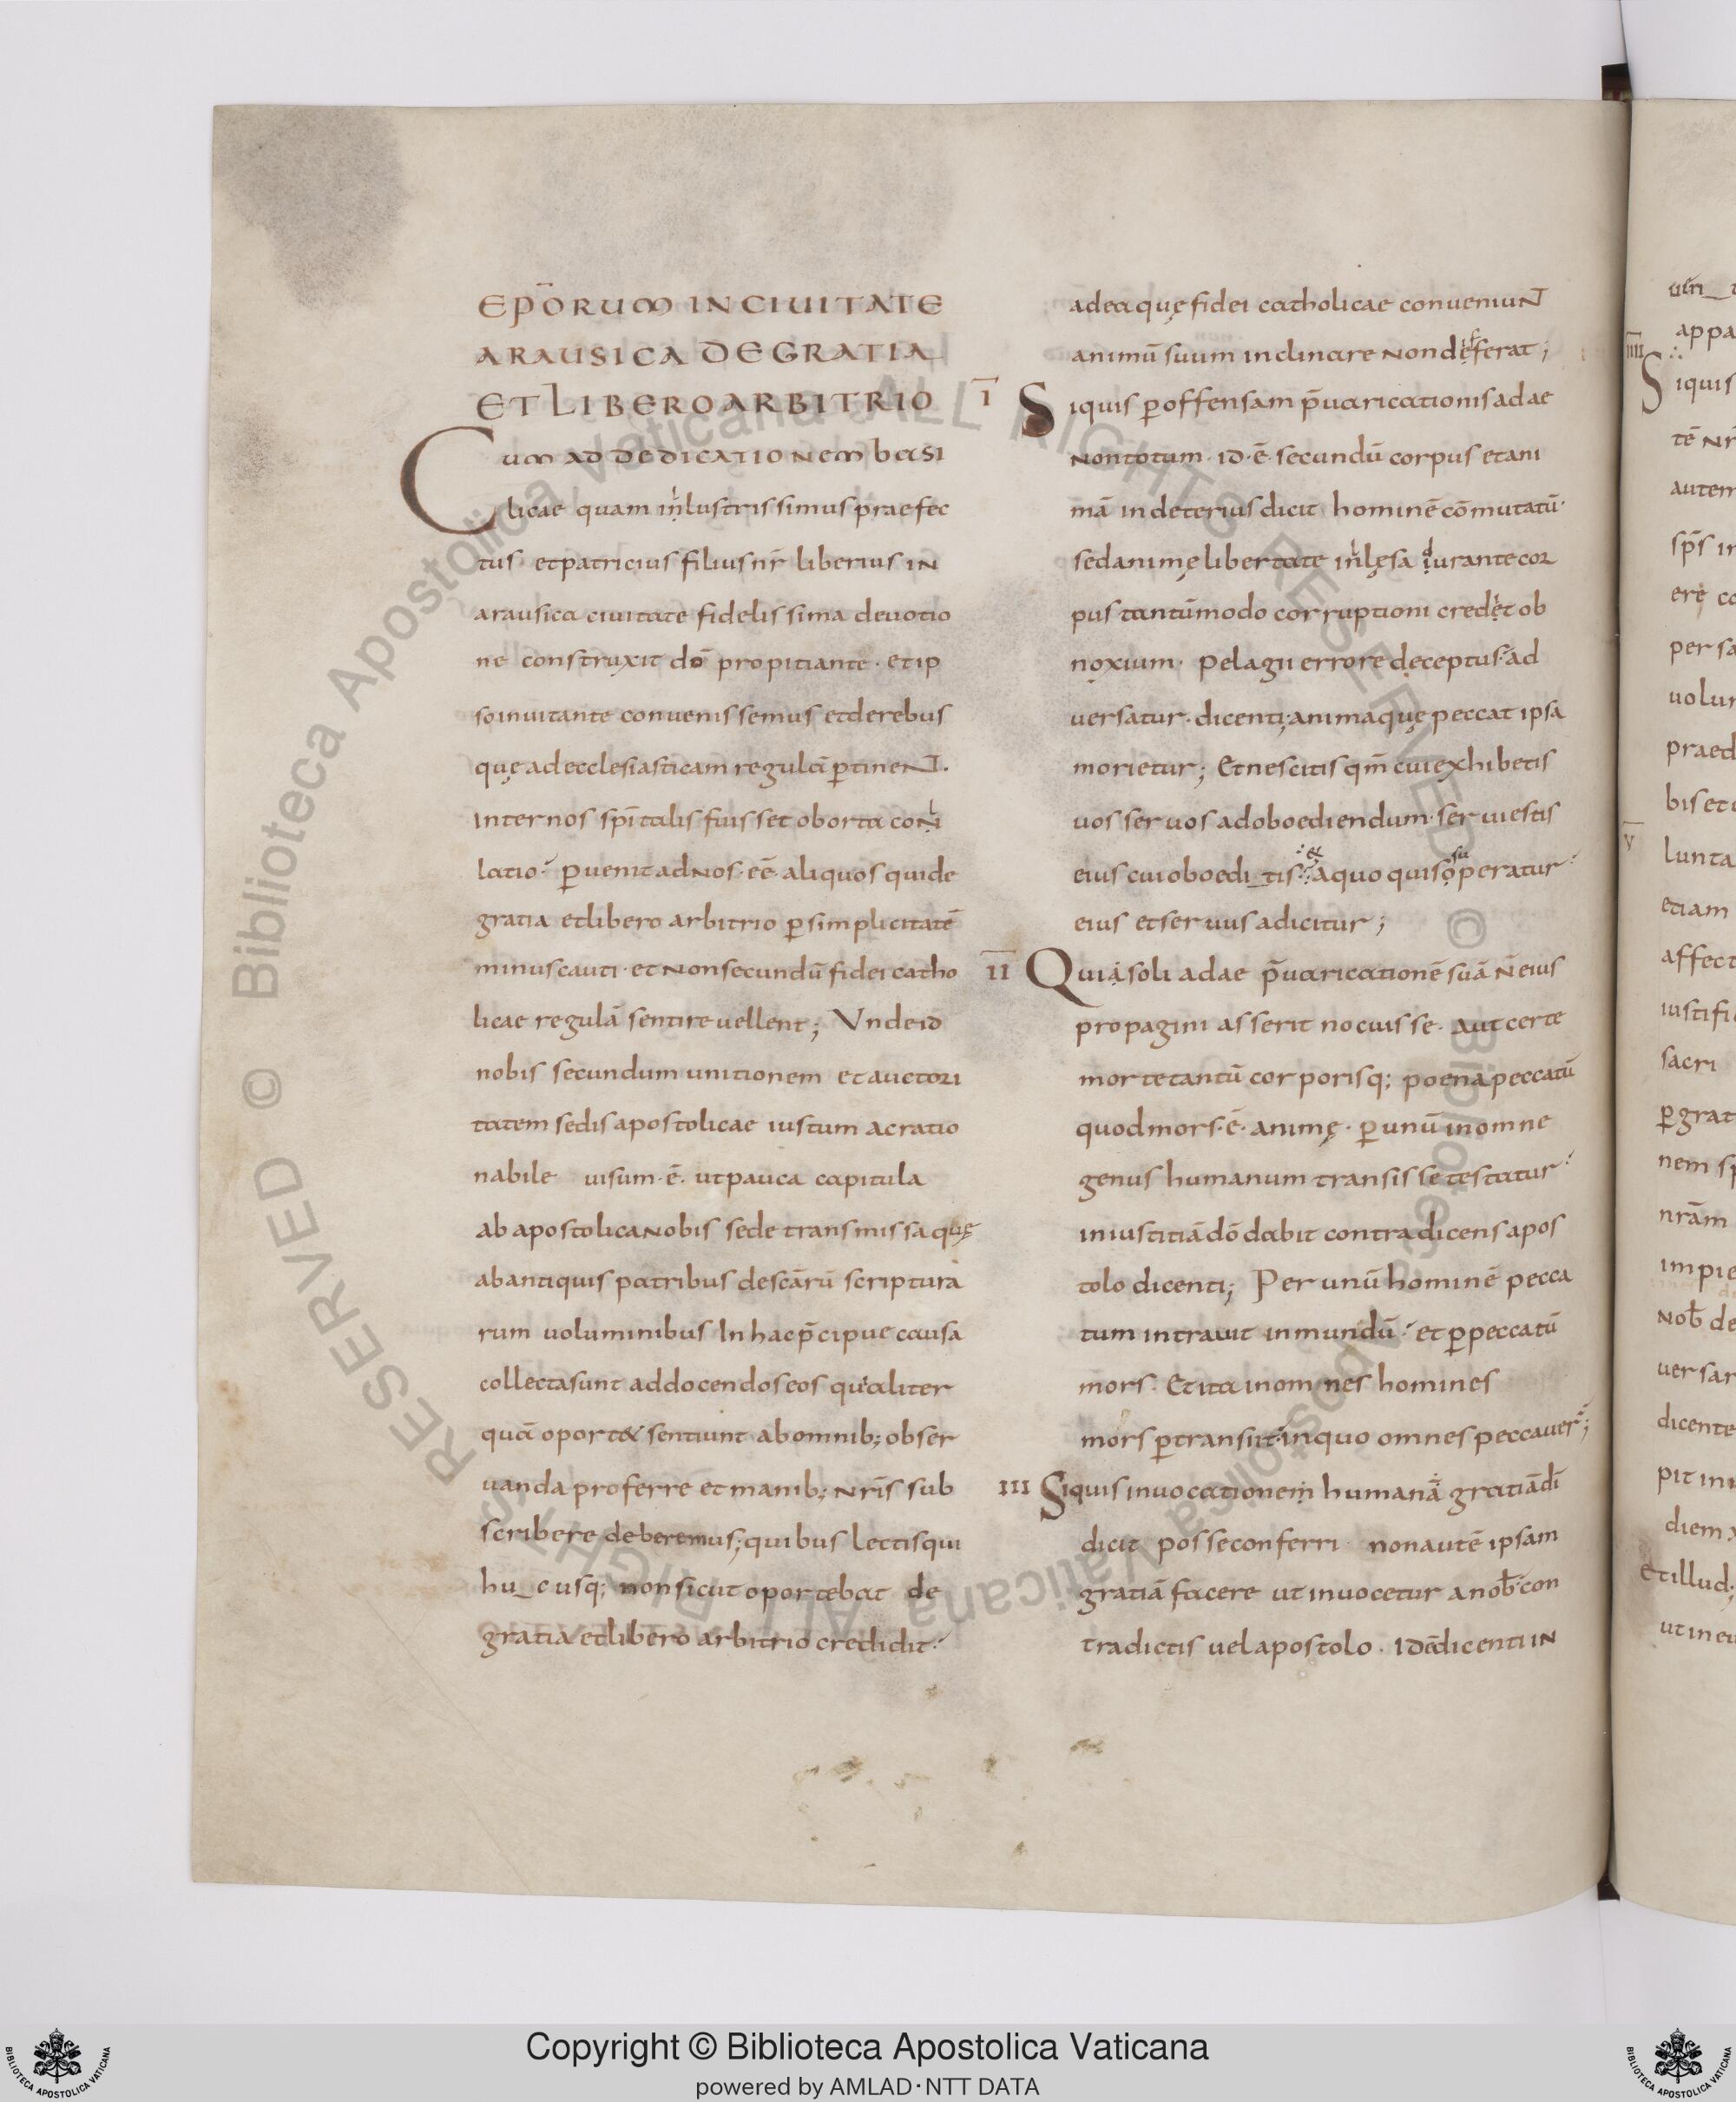 EP̅ORUM IN CIUITATE
ARAUSICA DE GRATIA
ET LIBERO ARBITRIO
Cum ad dedicationem basi
licae quam inlustrissimus praefec
tus et patricius filius nr̅ liberius in
arausica ciuitate fidelissima deuotio
ne construxit do̅ propitiante · et ip
so inuitante conuenissemus et de rebus
quę ad ecclesiasticam regula̅ p̲tinent.
Inter nos sp̅italis fuisset oborta conl
latio · p̲uenit ad nos · ee̅ aliquos qui de
gratia et libero arbitrio p̲ simplicitate̅
minus cauti · et non secundu̅ fidei catho
licae regula̅ sentire uellent; Unde id
nobis secundum unitionem et auctori
tatem sedis apostolicae iustum ac ratio
nabile uisum · e̅ · ut pauca capitula
ab apostolica nobis sede transmissa quę
ab antiquis patribus de sc̅aru̅ scriptura
rum uoluminibus In hac p̅cipue causa
collecta sunt ad docendos eos qui aliter
qua̅ oportet sentiunt ab omnib; obser
uanda proferre et manib; nr̅is sub
scribere deberemus; quibus lectis qui
hu_cusq; non sicut oportebat de
gratia et libero arbitrio credidit ·
ad ea quę fidei catholicae conueniunt
animu̅ suum inclinare non differat;
I Siquis p̲ offensam p̅uaricationis adae
non totum · id · e̅ · secundu̅ corpus et ani
ma̅ in deterius dicit homine̅ co̅mutatu̅ ·
sed animę libertate inlęsa durante cor
pus tantu̅modo corruptioni credit ob
noxium · pelagii errore deceptus · ad
uersatur · dicenti · anima quę peccat ipsa
morietur; Et nescitis qm̅ cui exhibetis
uos seruos ad oboediendum · serui estis
eius cui oboedi_tis · et a quo quis superatur ·
eius et seruus adicitur;
II Qui soli adae p̅uaricatione̅ sua̅ n̅ eius
propagini asserit nocuisse · aut certe
morte tantu̅ corporis q; poena peccatu̅
quod mors · e̅ · animę · p̲ unu̅ in omne
genus humanum transisse testatur ·
iniustitia̅ do̅ dabit contradicens apos
tolo dicenti; Per unu̅ homine̅ pecca
tum intrauit in mundu̅ · et p̲ peccatu̅
mors · Et ita in omnes homines
mors p̲transiit · in quo omnes peccauer̅;
III Siquis inuocatione humana gratia̅ di̅
dicit posse conferri · non aute̅ ipsam
gratia̅ facere ut inuocetur a nob̅ · con
tradictis uel apostolo · Ide̅ dicenti in
appa
IIII
Siquis
te̅ nr̅
autem
sp̅s in
ere co
per sa
uolun
praed
bis et
V
lunta
etiam
affect
iustifi
sacri
p̲ grat
nem sp
nr̅am
impie
nob̅ de
uersar
dicente
pit ini
diem
Et illud;
ut in eu
© Biblioteca Apostolica Vaticana ALL RIGHTS RESERVED
© Biblioteca Apostolica Vaticana ALL RIGHTS RESERVED
Copyright © Biblioteca Apostolica Vaticana
powered by AMLAD·NTT DATA
BIBLIOTECA APOSTOLICA VATICANA
BIBLIOTECA APOSTOLICA VATICANA